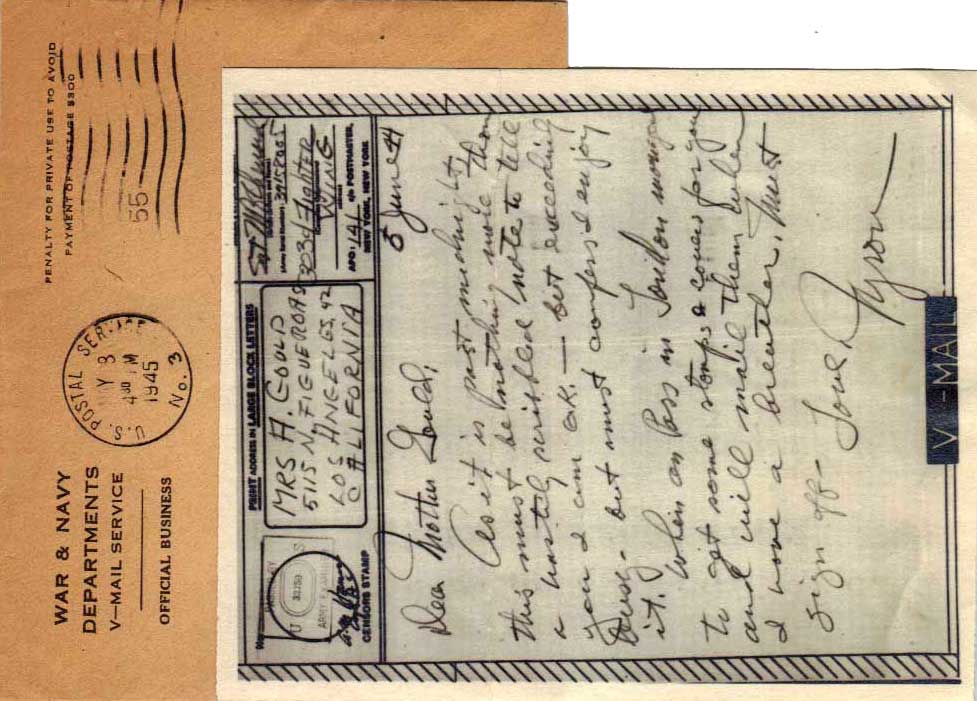 WAR & NAVY
DEPARTMENTS
V-MAIL SERVICE
OFFICIAL BUSINESS
U.S. POSTAL SERVICE
3
4 30 PM
1945
No. 3
PENALTY FOR PRIVATE USE TO AVOID
PAYMENT OF POSTAGE $300
55
CENSORS STAMP
PRINT ADDRESS IN LARGE BLOCK LETTERS
MRS A. GOULD
5115 N. FIGUEROA ST
LOS ANGELES, 42
CALIFORNIA
303d FIGHTER
WING
APO: 141 c/o POSTMASTER,
NEW YORK, NEW YORK
5 June 44
Dear Mother Gould,
As it is past midnight
this must be nothing more than
a hastily scribbled note to tell
you I am O.K. — but exceeding
busy - but must confess I enjoy
it. When on Pass in London
to get some stamps & covers for you
and will mail them when
I have a breather. Must
sign off -
Love
Tyron
V - MAIL